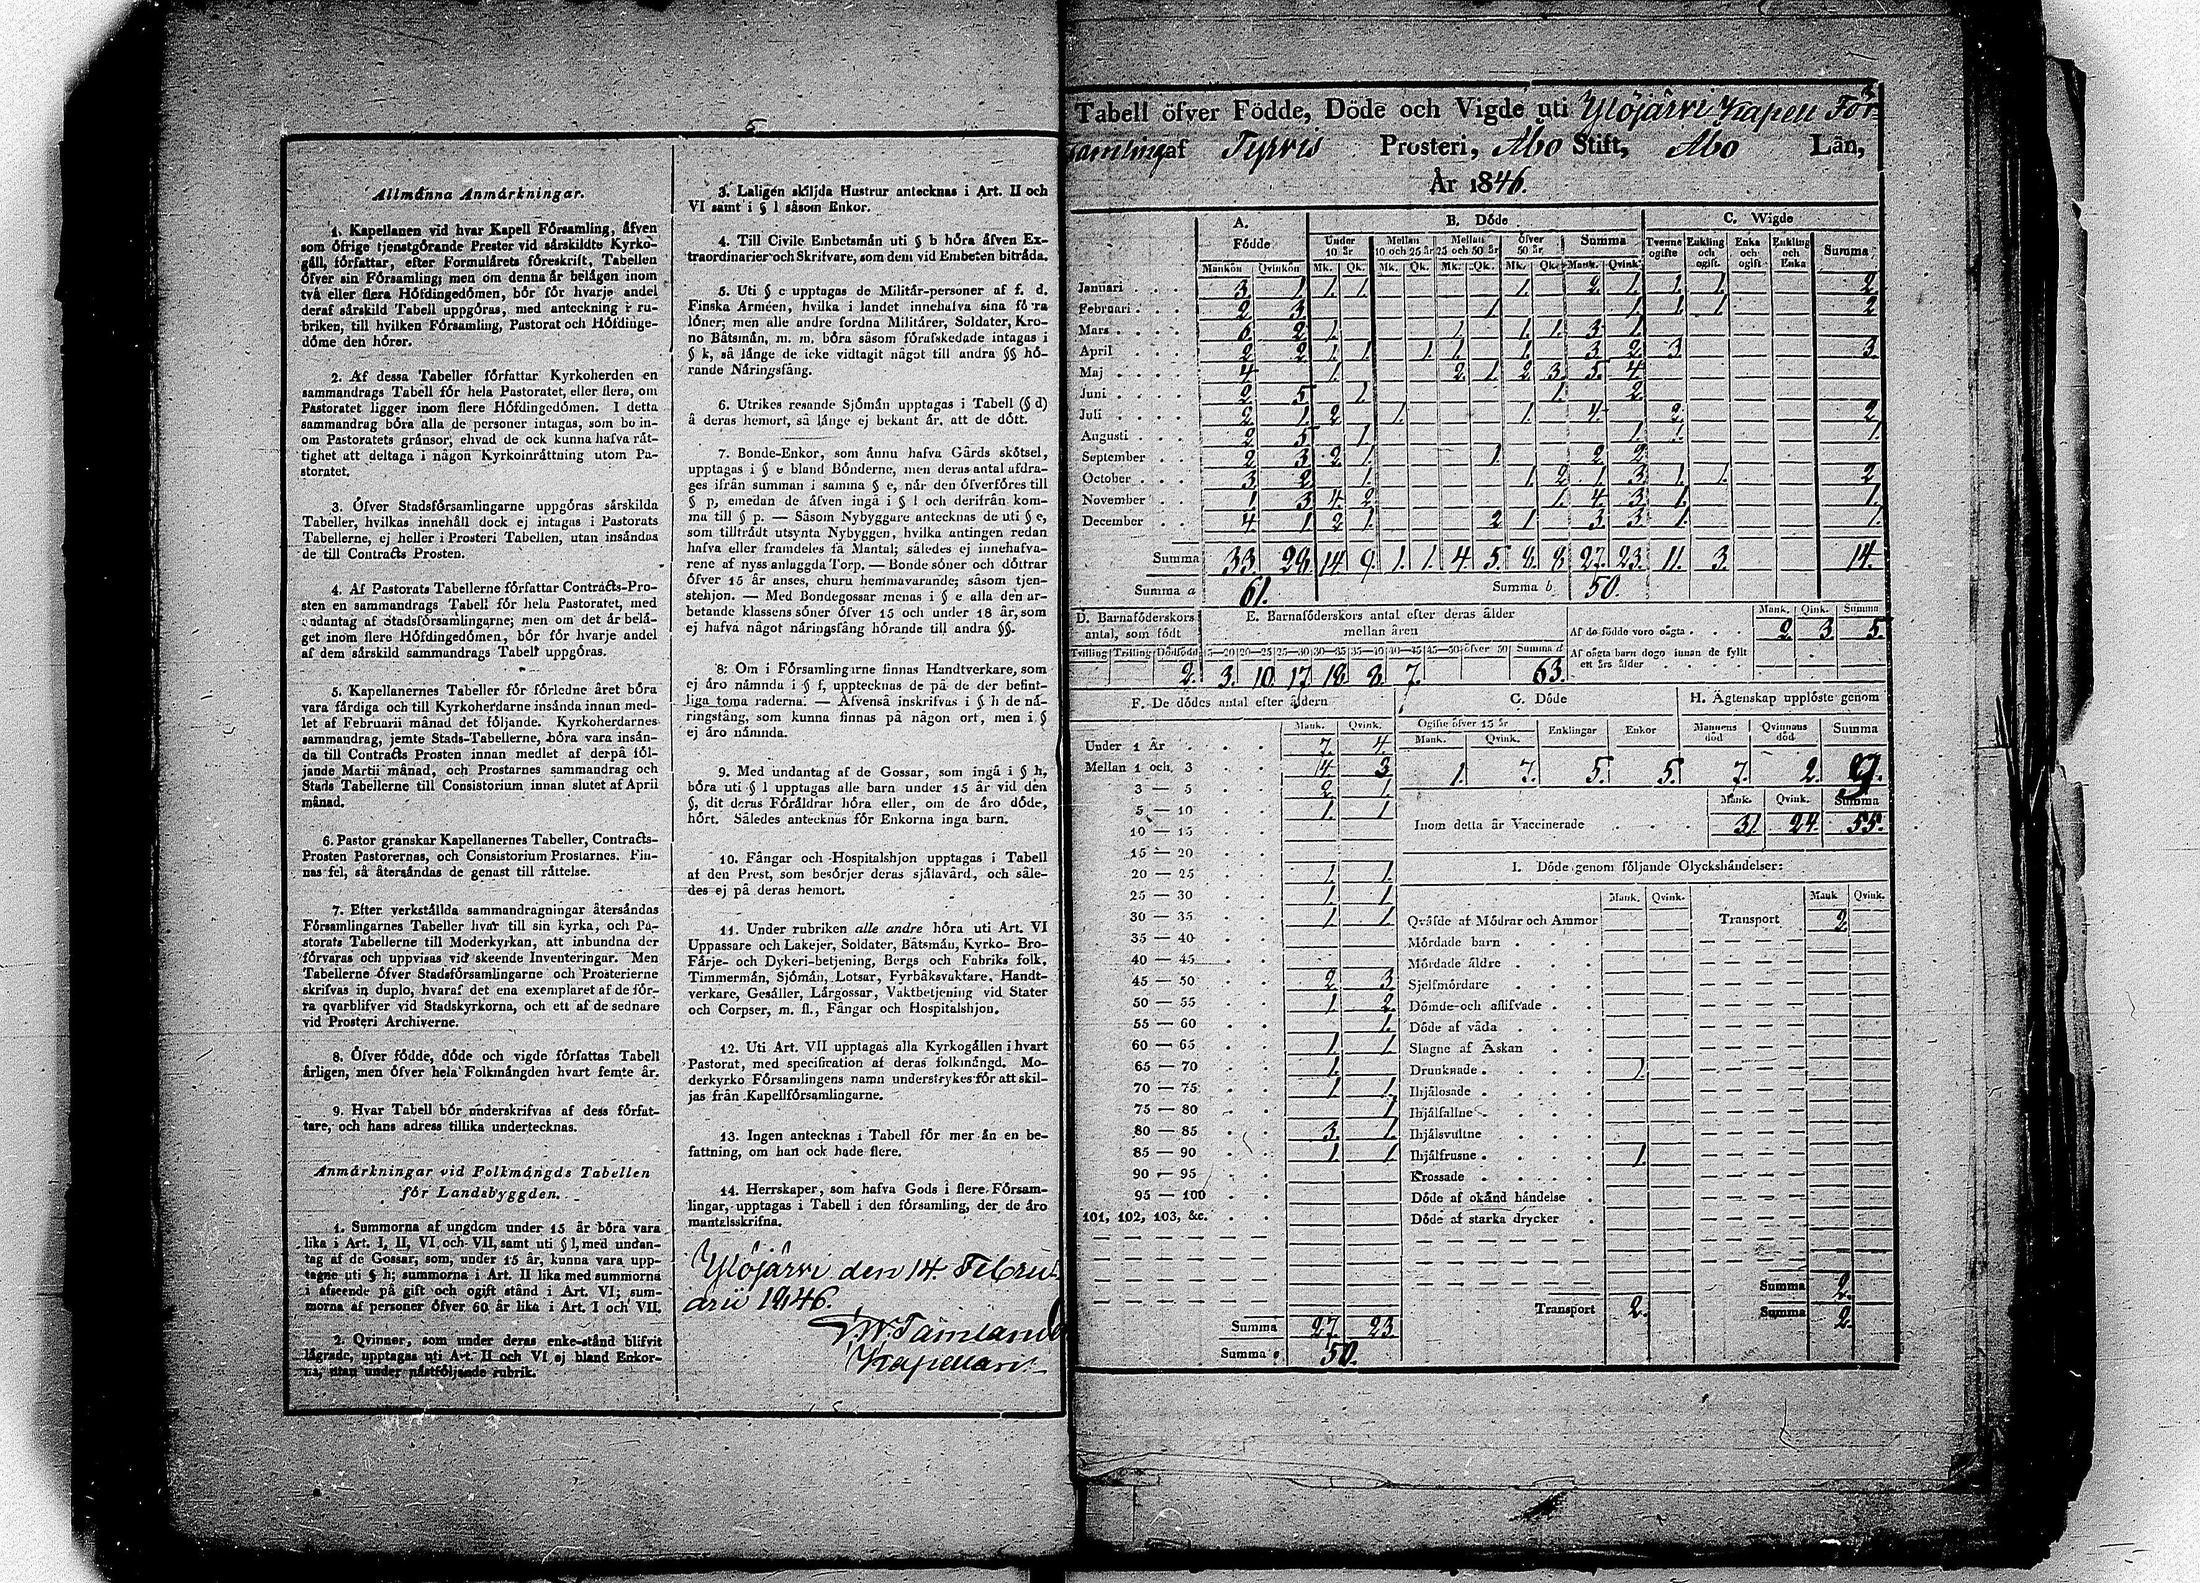 5
Allmånna Anmårkningar.
1. Kapellanen vid hvar Kapell Fôrsamling, åfven
som ôfrige tjenstgôrande Prester vid sårskildte Kyrko-
gåll, fôrfattar, efter Formulårets fôreskrift, Tabellen
ôfver sin Fôrsamling; men om denna år belågen inom
två eller flera Hôfdingedômen, bôr fôr hvarje andel
deraf sårskild Tabell uppgôras, med anteckning i ru-
briken, till hvilken Fôrsamling, Pastorat och Hôfdinge-
dôme den hôrer.
2. Af dessa Tabeller fôrfattar Kyrkoherden en
sammandrags Tabell fôr hela Pastoratet, eller flera, om
Pastoratet ligger inom flere Hôfdingedômen. I detta
sammandrag bôra alla de personer intagas, som bo in-
om Pastoratets grånsor, ehvad de ock kunna hafva råt-
tighet att deltaga i någon Kyrkoinråttning utom Pa-
storatet.
3. Ôfver Stadsfôrsamlingarne uppgôras sårskilda
Tabeller, hvilkas innehåll dock ej intagas i Pastorats
Tabellerne, ej heller i Prosteri Tabellen, utan insåndas
de till Contracts Prosten.
4. Af Pastorats Tabellerne fôrfattar Contracts-Pro-
sten en sammandrags Tabell fôr hela Pastoratet, med
undantag af Stadsfôrsamlingarne; men om det år belå-
get inom flere Hôfdingedômen, bôr fôr hvarje andel
af dem sårskild sammandrags Tabell uppgôras.
5. Kapellanernes Tabeller fôr fôrledne året bôra
vara fårdiga och till Kyrkoherdarne insånda innan med-
let af Februarii månad det fôljande. Kyrkoherdarnes
sammandrag, jemte Stads-Tabellerne, bôra vara insån-
da till Contracts Prosten innan medlet af derpå fôl-
jande Martii månad, och Prostarnes sammandrag och
Stads Tabellerne till Consistorium innan slutet af April
månad.
6. Pastor granskar Kapellanernes Tabeller, Contracts-
Prosten Pastorernas, och Consistorium Prostarnes. Fin-
nas fel, så återsåndas de genast till råttelse.
7. Efter verkstållda sammandragningar återsåndas
Fôrsamlingarnes Tabeller hvar till sin kyrka, och Pa-
storats Tabellerne till Moderkyrkan, att inbundna der
fôrvaras och uppvisas vid skeende Inventeringar. Men
Tabellerne ôfver Stadsfôrsamlingarne och Prosterierne
skrifvas in duplo, hvaraf det ena exemplaret af de fôr-
ra qvarblifver vid Stadskyrkorna, och ett af de sednare
vid Prosteri Archiverne.
8. Ôfver fôdde, dôde och vigde fôrfattas Tabell
årligen, men ôfver hela Folkmångden hvart femte år.
9. Hvar Tabell bôr underskrifvas af dess fôrfat-
tare, och hans adress tillika undertecknas.
Anmårkningar vid Folkmångds Tabellen
fôr Landsbyggden.
1. Summorna af ungdom under 15 år bôra vara
lika i Art. I, II, VI och VII, samt uti § l, med undan-
tag af de Gossar, som, under 15 år, kunna vara upp-
tagne uti § h; summorna i Art. II lika med summorna
i afseende på gift och ogift stånd i Art. VI; sum-
morna af personer ôfver 60 år lika i Art. I och VII.
2. Qvinnor, som under deras enke-stånd blifvit
lågrade, upptagas uti Art. II och VI ej bland Enkor-
na, utan under nåstfôljande rubrik.
3. Laligen skiljda Hustrur antecknas i Art. II och
VI samt i § l såsom Enkor.
4. Till Civile Embetsmån uti § b hôra åfven Ex-
traordinarier och Skrifvare, som dem vid Embeten bitråda.
5. Uti § c upptagas de Militår-personer af f. d.
Finska Arméen, hvilka i landet innehafva sina fôrra
lôner; men alle andre fordna Militårer, Soldater, Kro-
no Båtsmån, m. m. bôra såsom fôrafskedade intagas i
§ k, så långe de icke vidtagit något till andra §§ hô-
rande Nåringsfång.
6. Utrikes resande Sjômån upptagas i Tabell (§ d)
å deras hemort, så långe ej bekant år, att de dôtt.
7. Bonde-Enkor, som ånnu hafva Gårds skôtsel,
upptagas i § e bland Bônderne, men deras antal afdra-
ges ifrån summan i samma § e, når den ôfverfôres till
§ p, emedan de åfven ingå i § l och derifrån kom-
ma till § p. — Såsom Nybyggare antecknas de uti § e,
som tilltrådt utsynta Nybyggen, hvilka antingen redan
hafva eller framdeles få Mantal; således ej innehafva-
rene af nyss anlaggda Torp. — Bonde sôner och dôttrar
ôfver 15 år anses, churu hemmavarande; såsom tjen-
stehjon. — Med Bondegossar menas i § e alla den ar-
betande klassens sôner ôfver 15 och under 18 år, som
ej hafva något nåringsfång hôrande till andra §§.
8: Om i Fôrsamlingarne finnas Handtverkare, som
ej åro nåmnda i § f, upptecknas de på de der befint-
liga toma raderna. — Åfvenså inskrifvas i § h de nå-
ringsfång, som kunna finnas på någon ort, men i §
ej åro nåmnda.
9. Med undantag af de Gossar, som ingå i § h,
bôra uti § l upptagas alle barn under 15 år vid den
§, dit deras Fôråldrar hôra eller, om de åro dôde,
hôrt. Således antecknas fôr Enkorna inga barn.
10. Fångar och Hospitalshjon upptagas i Tabell
af den Prest, som besôrjer deras sjålavård, och såle-
des ej på deras hemort.
11. Under rubriken alle andre hôra uti Art. VI
Uppassare och Lakejer, Soldater, Båtsmån, Kyrko- Bro-
Fårje- och Dykeri-betjening, Bergs och Fabriks folk,
Timmermån, Sjômån, Lotsar, Fyrbåksvaktare, Handt-
verkare, Gesåller, Lårgossar, Vaktbetjening vid Stater
och Corpser, m. fl., Fångar och Hospitalshjon.
12. Uti Art. VII upptagas alla Kyrkogållen i hvart
Pastorat, med specification af deras folkmångd. Mo-
derkyrko Fôrsamlingens namn understrykes fôr att skil-
jas från Kapellfôrsamlingarne.
13. Ingen antecknas i Tabell fôr mer ån en be-
fattning, om han ock hade flere.
14. Herrskaper, som hafva Gods i flere Fôrsam-
lingar, upptagas i Tabell i den fôrsamling, der de åro
mantalsskrifna.
Ylöjärvi den 14. Febru-
arii 1846.
Kapellan
Tabell öfver Födde, Döde och Vigde uti Ylöjärvi Kapell För
samling af Tyrvis Prosteri, Åbo Stift, Åbo Län,
År 1846.
A. B. Dôde C. Wigde
Fôdde Under 10 år Mellan 10 och 25 år Mellan 25 och 50 år ôfver 50 år Summa Tvenne ogifte Enkling och ogift. Enka och ogift Enkling och Enka Summa
Mankôn Qvinkôn Mk. Qk. Mk. Qk. Mk. Qk. Mk. Qk. Mank. Qvink.
Januari 3. 1. 1. 1. 1. 2. 1. 1. 1. 2
Februari 2 3 1 1. 1. 1. 2
Mars 6. 2 1. 1 1. 1. 3. 1.
April 2 2 1. 1. 1. 1. 1. 3. 2. 3 3.
Maj 4 1. 2. 1. 2. 3. 5. 4
Juni 2 5 1 1. 2
Juli 2 1. 2 1. 1. 4 2. 2
Augusti 2 5 1 1. 1. 1.
September 2 3 2. 1. 1. 2 2
October 3 2 1. 1. 2 1. 3. 1. 1. 2
November 1. 3 4. 2 1. 4 3. 1. 1.
December 4 1. 2 1. 2 1. 3. 3. 1. 1.
Summa 33 28 14 9. 1. 1. 4. 5. 8. 8 27. 23. 11. 3. 14.
Summa a 61. Summa b 50.
D. Barnafôderskors antal, som fôdt
E. Barnafôderskors antal efter deras ålder
mellan åren
Mank. Qink. Summa
Af de fôdde voro oågta 2 3 5.
Af oågta barn dogo innan de fyllt
ett års ålder
Tvilling Trilling Dôdfôdd 15—20 20—25 25—30 30—35 35—40 40—45 45—50 ôfver 50 Summa d
2. 3. 10 17 18. 8. 7. 63.
F. De dôdes antal efter åldern
Mank. Qvink.
Under 1 År 7. 4.
Mellan 1 och 3 4 3
3 — 5 2 1.
5 — 10 1. 1
10 — 15
15 — 20
20 — 25 1 1
25 — 30 1 1
30 — 35 1. 1
35 — 40
40 — 45
45 — 50 2 3
50 — 55 1 2
55 — 60 1.
60 — 65 1 1
65 — 70 1.
70 — 75 1 1
75 — 80 1
80 — 85 3. 1.
85 — 90 1 1
90 — 95
95 — 100
101, 102, 103, &c.
Summa 27. 23.
Summa 50.
G. Dôde
Ogifte ôfver 15 år Enklingar Enkor
Mank. Qvink.
1. 7. 5. 5.
H. Ågtenskap upplôste genom
Mannens dôd Qvinnans dôd Summa
7. 2. 9.
Mank. Qvink. Summa
Inom detta år Vaccinerade 31. 24. 55.
I. Dôde genom fôljande Olyckshåndelser:
Mank. Qvink. Mank Qvink.
Qvåfde af Môdrar och Ammor Transport 2.
Môrdade barn
Môrdade åldre
Sjelfmôrdare
Dômde och aflifvade
Dôde af våda
Slagne af Åskan
Drunknade 1.
Ihjålosade
Ihjålfallne
Ihjålsvultne
Ihjålfrusne 1.
Krossade
Dôde af okånd håndelse
Dôde af starka drycker
Summa 2.
Transport 2. Summa 2.